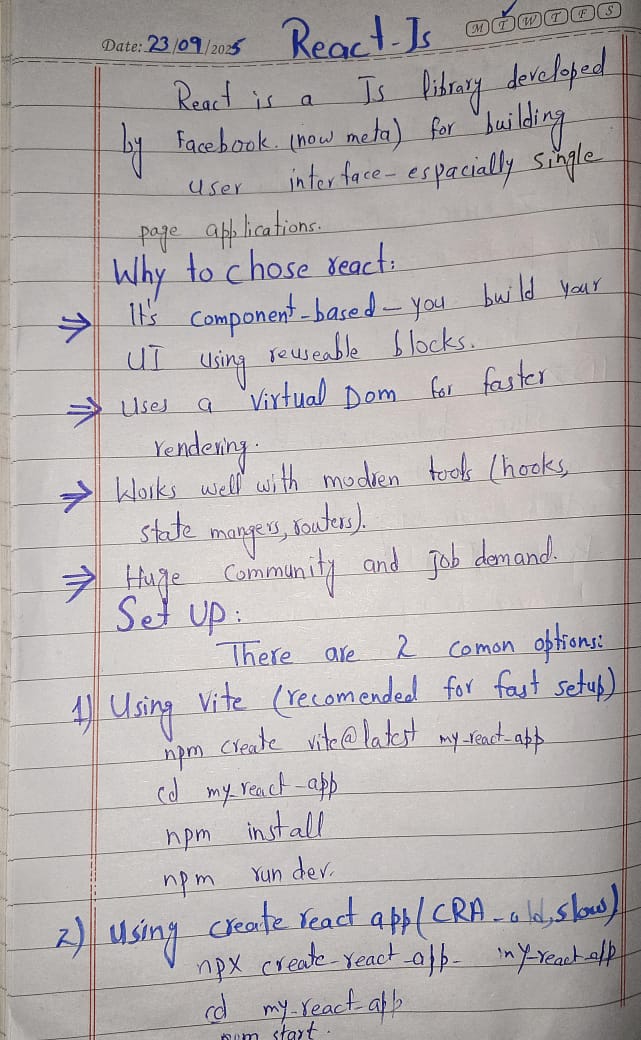 Date: 23/09/2025 React-Js M T W T F S
React is a Js library developed
by Facebook. (now meta) for building
user interface- espacially single
page applications.
Why to chose react:
⇒ It's component-based - you build your
UI using reuseable blocks.
⇒ Uses a Virtual Dom for faster
rendering.
⇒ Works well with modren tools (hooks,
state mangers, routers).
⇒ Huge Community and job demand.
Set up:
There are 2 comon options:
1) Using Vite (recomended for fast setup)
npm create vite@latest my-react-app
cd my-react-app
npm install
npm run dev.
2) Using create react app (CRA - old, slow)
npx create-react-app- my-react-app
cd my-react-app
npm start.